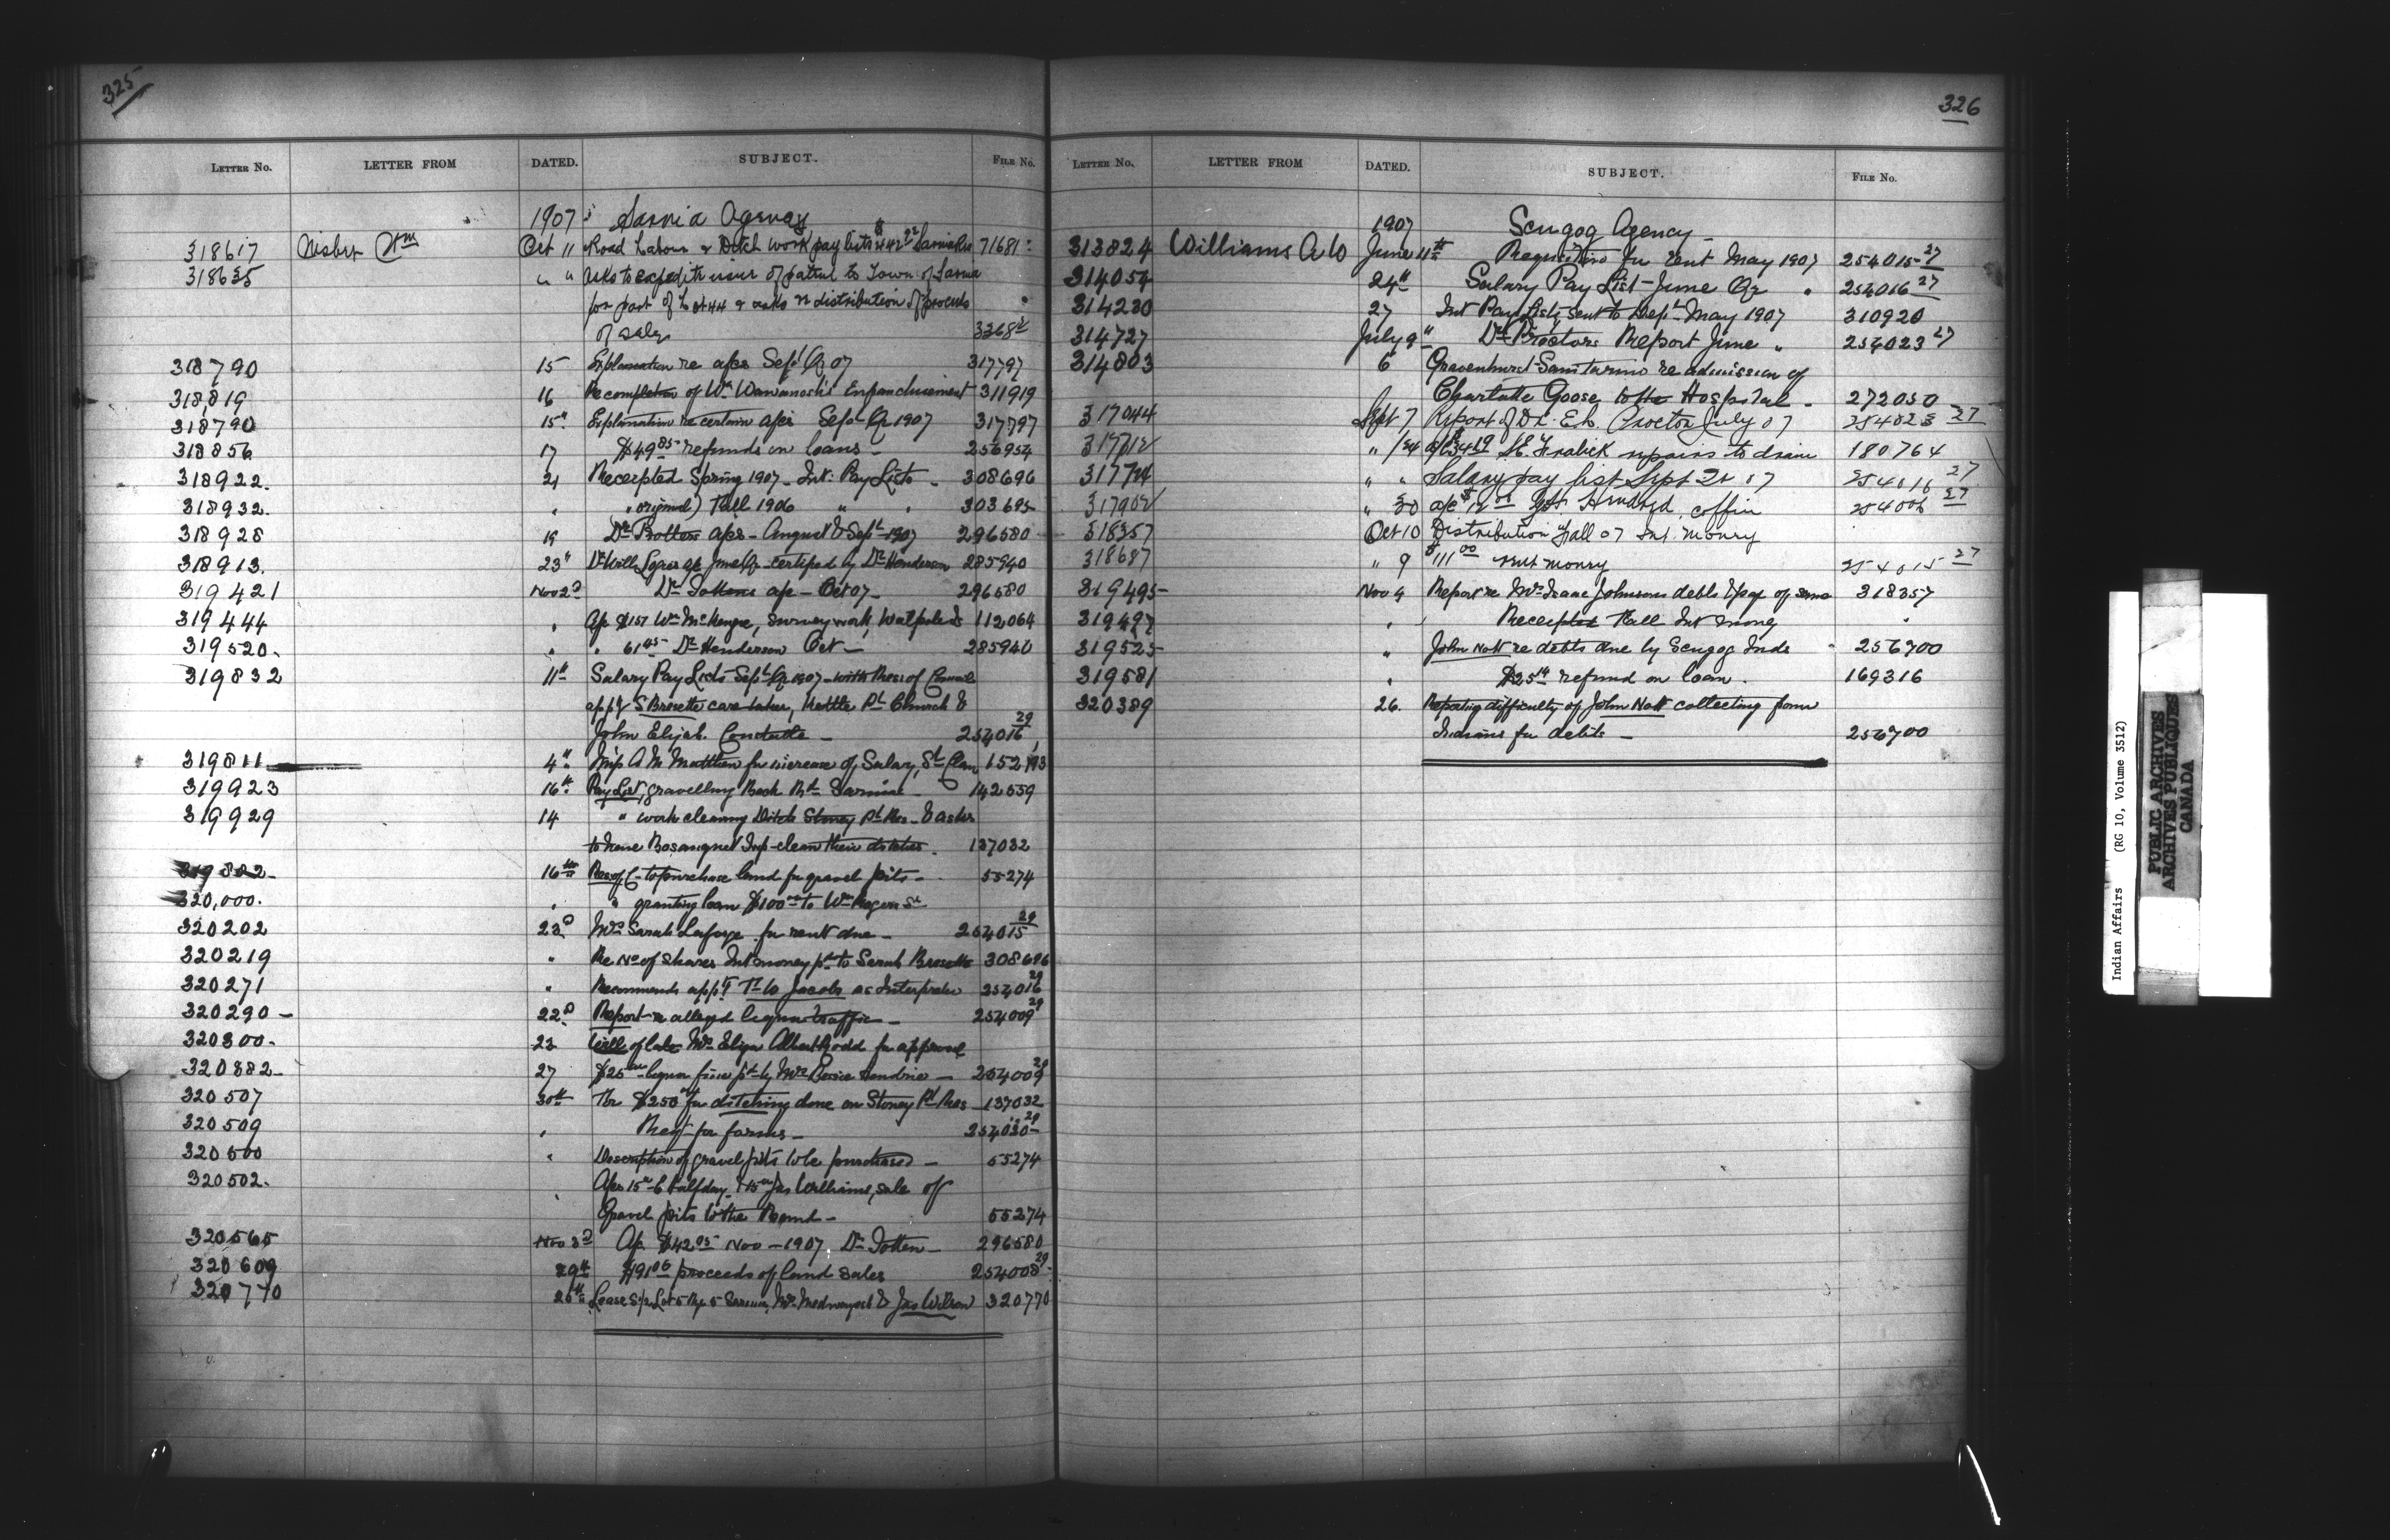 325
LETTER No. LETTER FROM DATED. SUBJECT. FILE No.
1907 Sarnia Agency
318617 Nisbet Wm Oct 11 Road Labour & Ditch work pay lists $442.22 Sarnia Res 71681
318635 " " Asks to expedite issue of patent to Town of Sarnia
for part of Lot 44 & asks re distribution of proceeds
of sale 3368
318790 15 Explanation re a/cs Sept Qr 07 317797
318,819 16 Re completion of Wm Wawanosh's Enfranchisement 311919
318790 15" Explanation re certain a/cs Sept Qr 1907 317797
318856 17 $49.85 refunds on loans - 256954
318922. 21 Receipted Spring 1907 - Int: Pay Lists - 308696
318932. " " original) Fall 1906 " " 303695
318928 19 Dr a/cs - August & Sept 1907 296580
318913. 23" Dr Will a/c June Qr - certified by Dr Henderson 285940
319421 Nov 2d Dr Tottens a/c - Oct 07 - 296580
319444 " A/c $157 Wm McKenzie, survey work, Walpole Id 112064
319520. " " 61.45 Dr Henderson Oct - 285940
319832 11th Salary Pay Lists - Sept Qr 1907 - with Res: of Council
app'g S Bressette caretaker, Kettle Pt Church &
John Elijah Constable - 254016 29
319811 4th M'p A M Matthew for increase of Salary, St Clair 152193
319923 16th Pay List, gravelling Back Rd Sarnia - 142559
319929 14 " work cleaning Ditch Stoney Pt Res - & asks
to have Bosanquet Twp clean their ditches. 137032
319802 - 16th Res of C - to purchase land for gravel pits - 55274
320,000. " " granting loan $100.00 to Wm Rogers Sr
320202 23d Mrs Sarah Laforge for rent due - 254015 29
320219 " Re No of shares Int money pd to Sarah Bressette 308696
320271 " Recommends app't Jacobs as Interpreter 254016 29
320290 - 22d Report re alleged liquor traffic - 254009 29
320300. 23 Will of late Mrs Eliza Albert Rodd for approval
320382 - 27 $25.00 liquor fine pd by Mrs - 254009 29
320507 30th $250 for ditching done on Stoney Pt Res 137032
320509 " Req't for forms - 254030 29
320500 " Description of gravel pits to be purchased - 55274
320502. " A/cs 15.00 C Halfday & 15.00 Jas Williams, sale of
Gravel pits to the Band - 55274
320565 Nov 3d A/c $42.95 Nov - 1907. Dr Totten - 296580
320609 29th $91.06 proceeds of land sales 254008 29
320770 26th Lease S/2 Lot 5 Rge 5 Sarnia, & Jas Wilson 320770
326
LETTER No. LETTER FROM DATED. SUBJECT. FILE No.
1907 Scugog Agency -
313824 Williams A W June 11th Requisition for rent May 1907 254015 27
314054 24th Salary Pay List - June Qr " 254016 27
314230 27 Int Pay Lists sent to Dept May 1907 310920
314727 July 9th Dr Proctors Report June " 254023 27
314803 6 Gravenhurst Sanitarium re admission of
Charlotte Goose to the Hospital - 272050
317044 Sept 7 Report of Dr. E. L. Proctor July 07 254023 27
317612 " 24 a/c $34.19 repairs to drain 180764
317724 " " Salary pay list Sept Qr 07 254016 27
317902 " 30 a/c $12.00 coffin 254006 27
318357 Oct 10 Distribution Fall 07 Int. money
318687 " 9 $111.00 rent money 254015 27
319495 - Nov 4 Report re Mrs Isaac Johnsons debts & pay of same 318357
319497 " Receipted Fall Int money "
319525 - " John Nott re debts due by Scugog Inds - 256700
319581 " $25.14 refund on loan. 169316
320389 26. Reporting difficulty of John Nott collecting from
Indians for debts - 256700
Indian Affairs (RG 10, Volume 3512)
PUBLIC ARCHIVES
ARCHIVES PUBLIQUES
CANADA